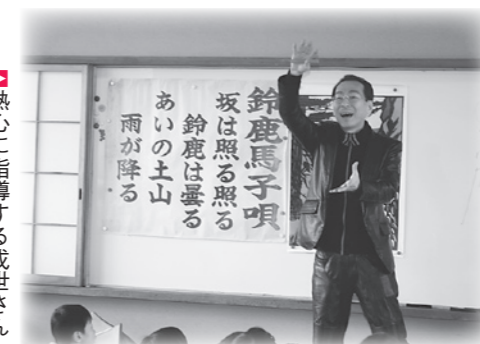 鈴鹿馬子唄
坂は照る照る
鈴鹿は曇る
あいの土山
雨が降る
熱心に指導する成世さん